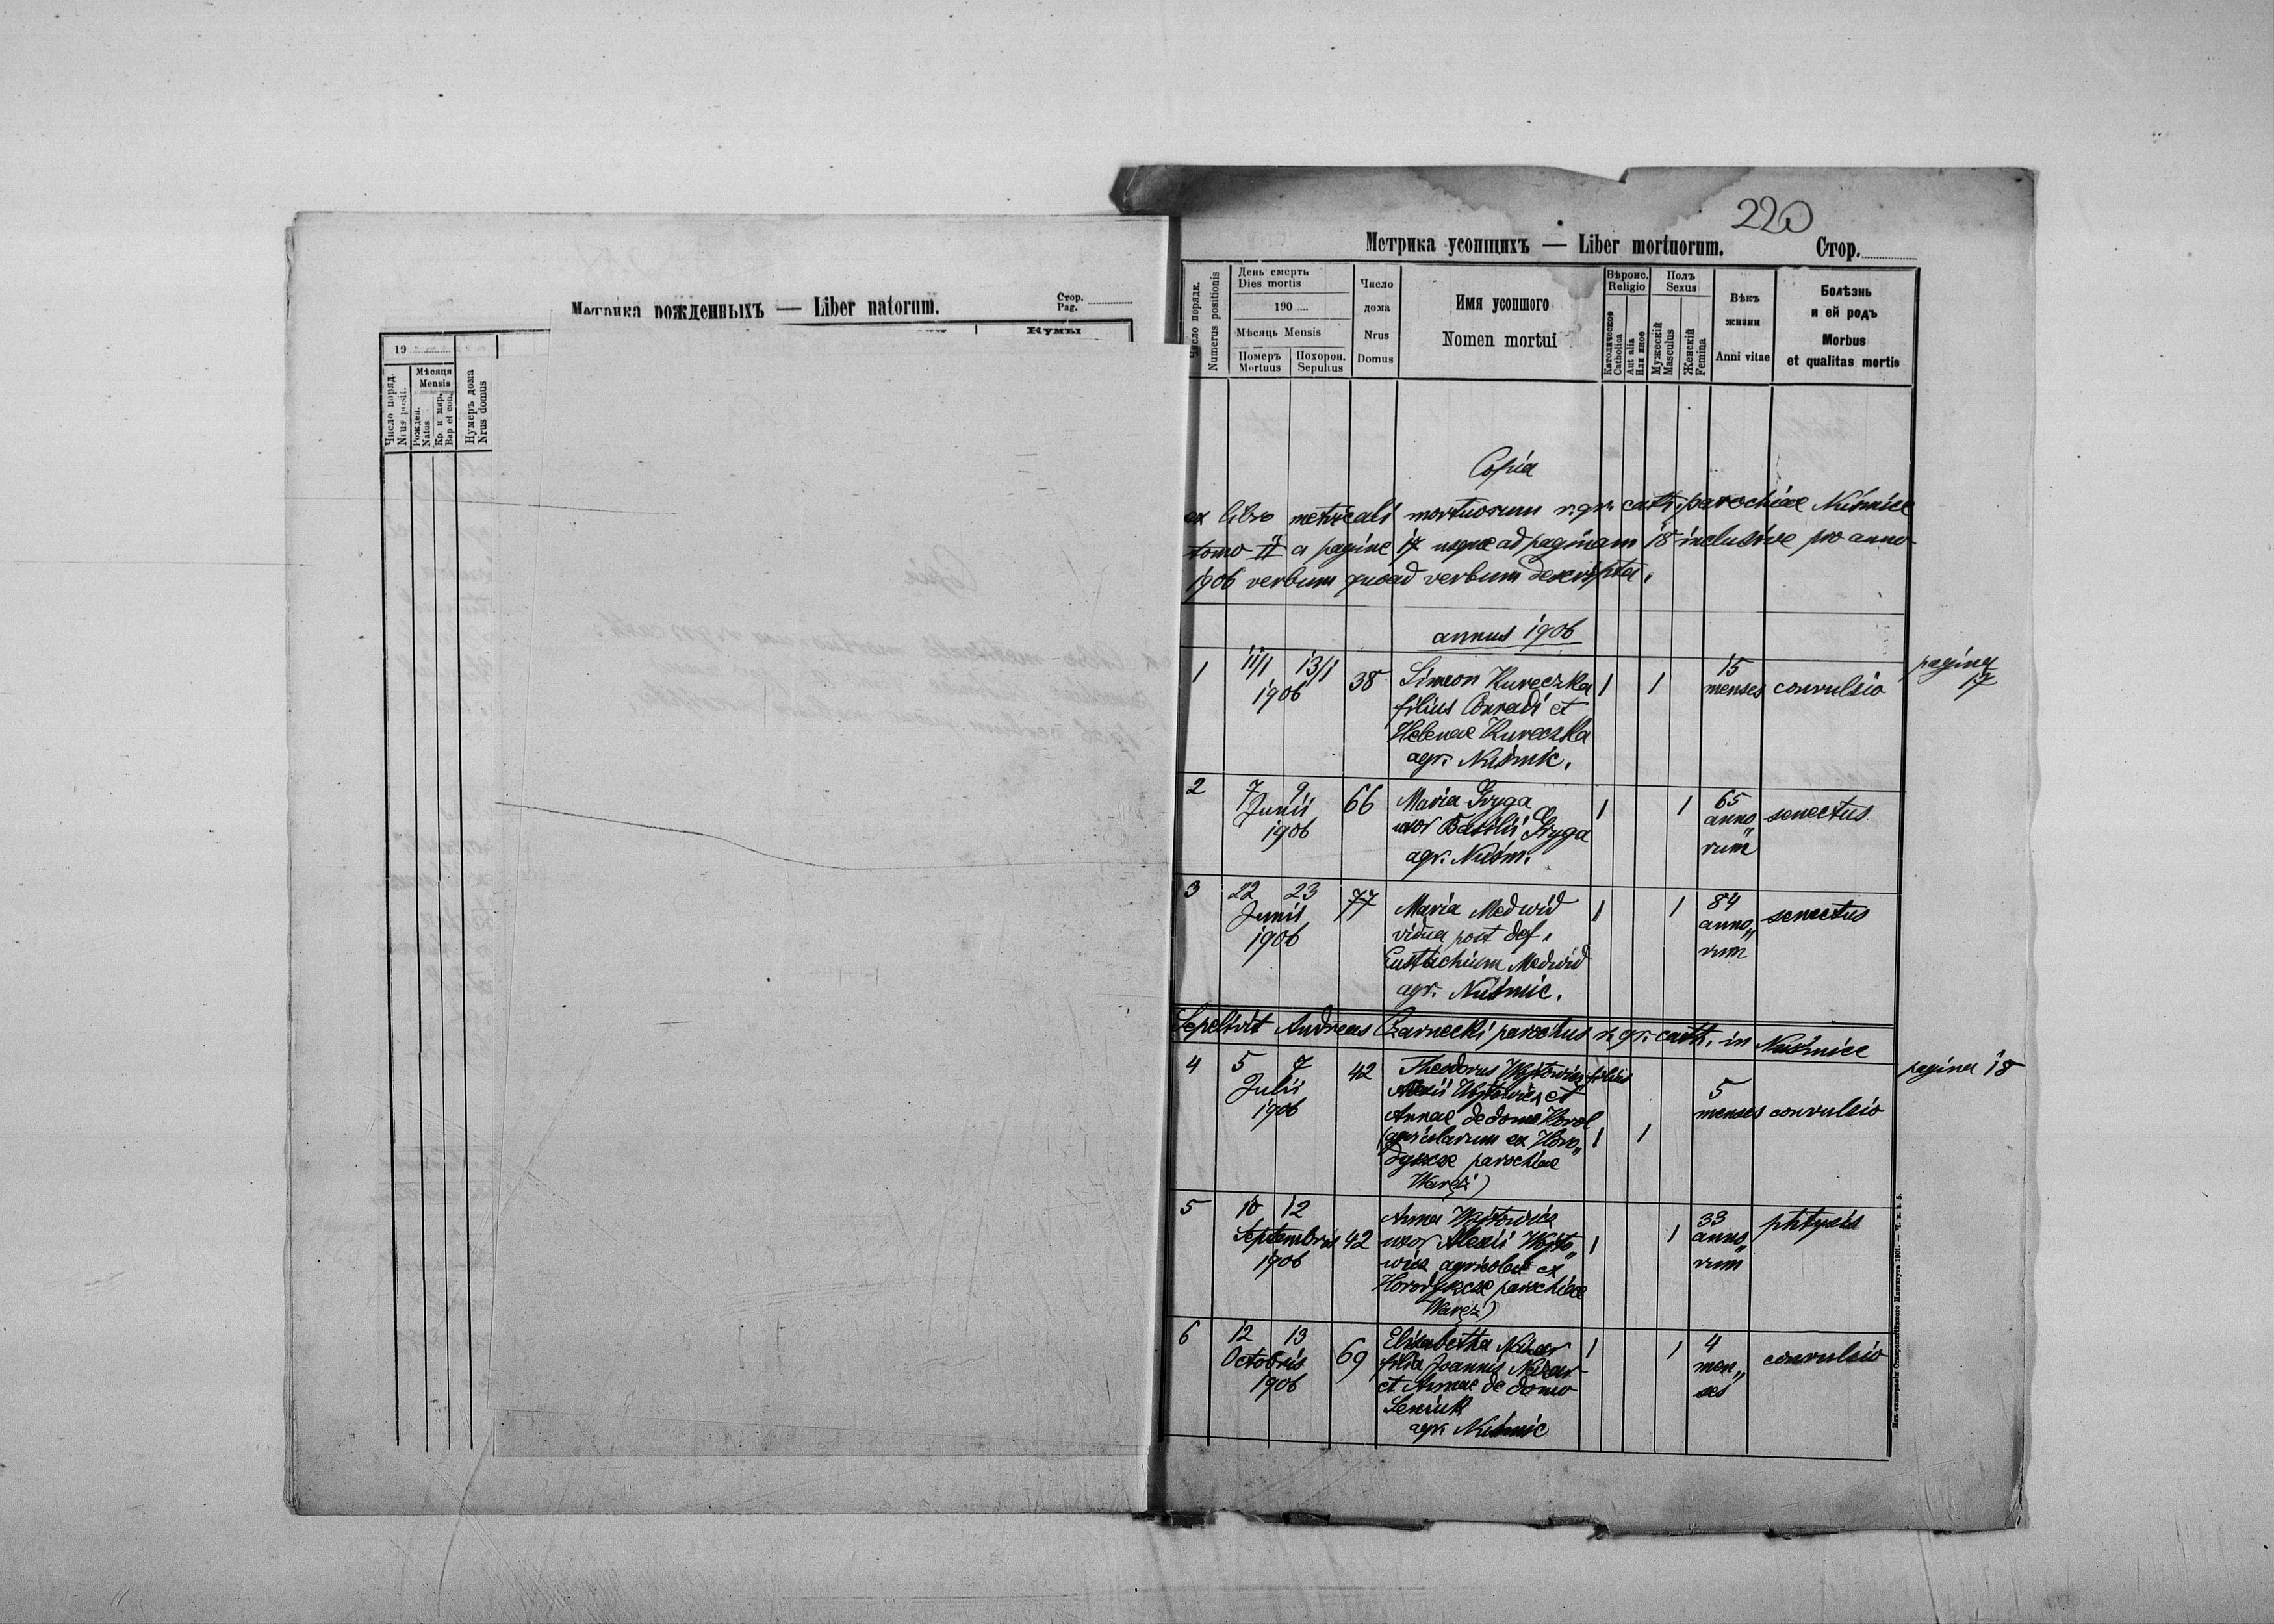 Метрика рожденныхъ — Liber natorum.
Стор.
Pag.
Кумы
19
Число поряд.
Nrus posit.
Мѣсяця
Mensis
Рожден.
Natus
Кр. и мир.
Bap et con.
Нумеръ дома
Nrus domus
220
Метрика усопщихъ — Liber mortuorum.
Стор.
Число порядк.
Numerus positionis
День смерть
Dies mortis
190
Мѣсяць Mensis
Померъ
Mortuus
Похорон.
Sepultus
Число
дома
Nrus
Domus
Имя усопшого
Nomen mortui
Вѣроис.
Religio
Католическое
Catholica
Aut alia
Или иное
Полъ
Sexus
Мужескій
Masculus
Женскій
Femina
Вѣкъ
жизни
Anni vitae
Болѣзнь
и ей родъ
Morbus
et qualitas mortis
Copia
ex libro metricali mortuorum r. gr. cath. parochiae Nuśmice
tomo II a pagine 17 usque ad paginam 18 inclusive pro anno
1906 verbum quoad verbum descripta.
annus 1906
pagina
17
1 11/1 13/1 38 Simeon Kureczka 1 1 15
1906 filius Conradi et menses convulsio
Helenae Kureczka
agr. Nuśmic.
2 7 9 66 Maria Gryga 1 1 65 senectus
Junii uxor Basilii Gryga anno„
1906 agr. Nuśm. rum
3 22 23 77 Maria Medwid 1 1 84 senectus
Junii vidua post def. anno„
1906 Eustachium Medwid rum
agr. Nuśmic.
Sepelivit Andreas Czarnecki parochus r. gr. cath. in Nuśmice
pagina 18
4 5 7 42 Theodorus Wójtowicz filius
Julii Alexii Wójtowicz et 5
1906 Annae de domo Korol menses convulsio
(agricolarum ex Horo„ 1 1
dyszcze parochiae
Waręż)
5 10 12 Anna Wójtowicz 33 phtysis
Septembris 42 uxor Alexii Wójto„ 1 1 anno„
1906 wicz agricolae ex rum
Horodyszcze parochiae
Waręż)
6 12 13 69 Elisabetha 1 1 4 convulsio
Octobris filia Joannis men„
1906 et Annae de domo ses
Seniuk
agr. Nuśmic